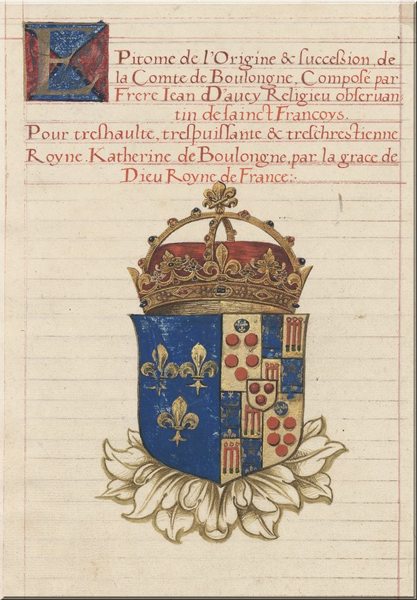 EPitome de l'Origine & succession, de
la Comte de Boulongne, Composé par
Frere Iean D'aucy Religieu obseruan
tin de sainct Francoys.
Pour treshaulte, trespuissante & treschrestienne
Royne. Katherine de Boulongne, par la grace de
Dieu Royne de France:·